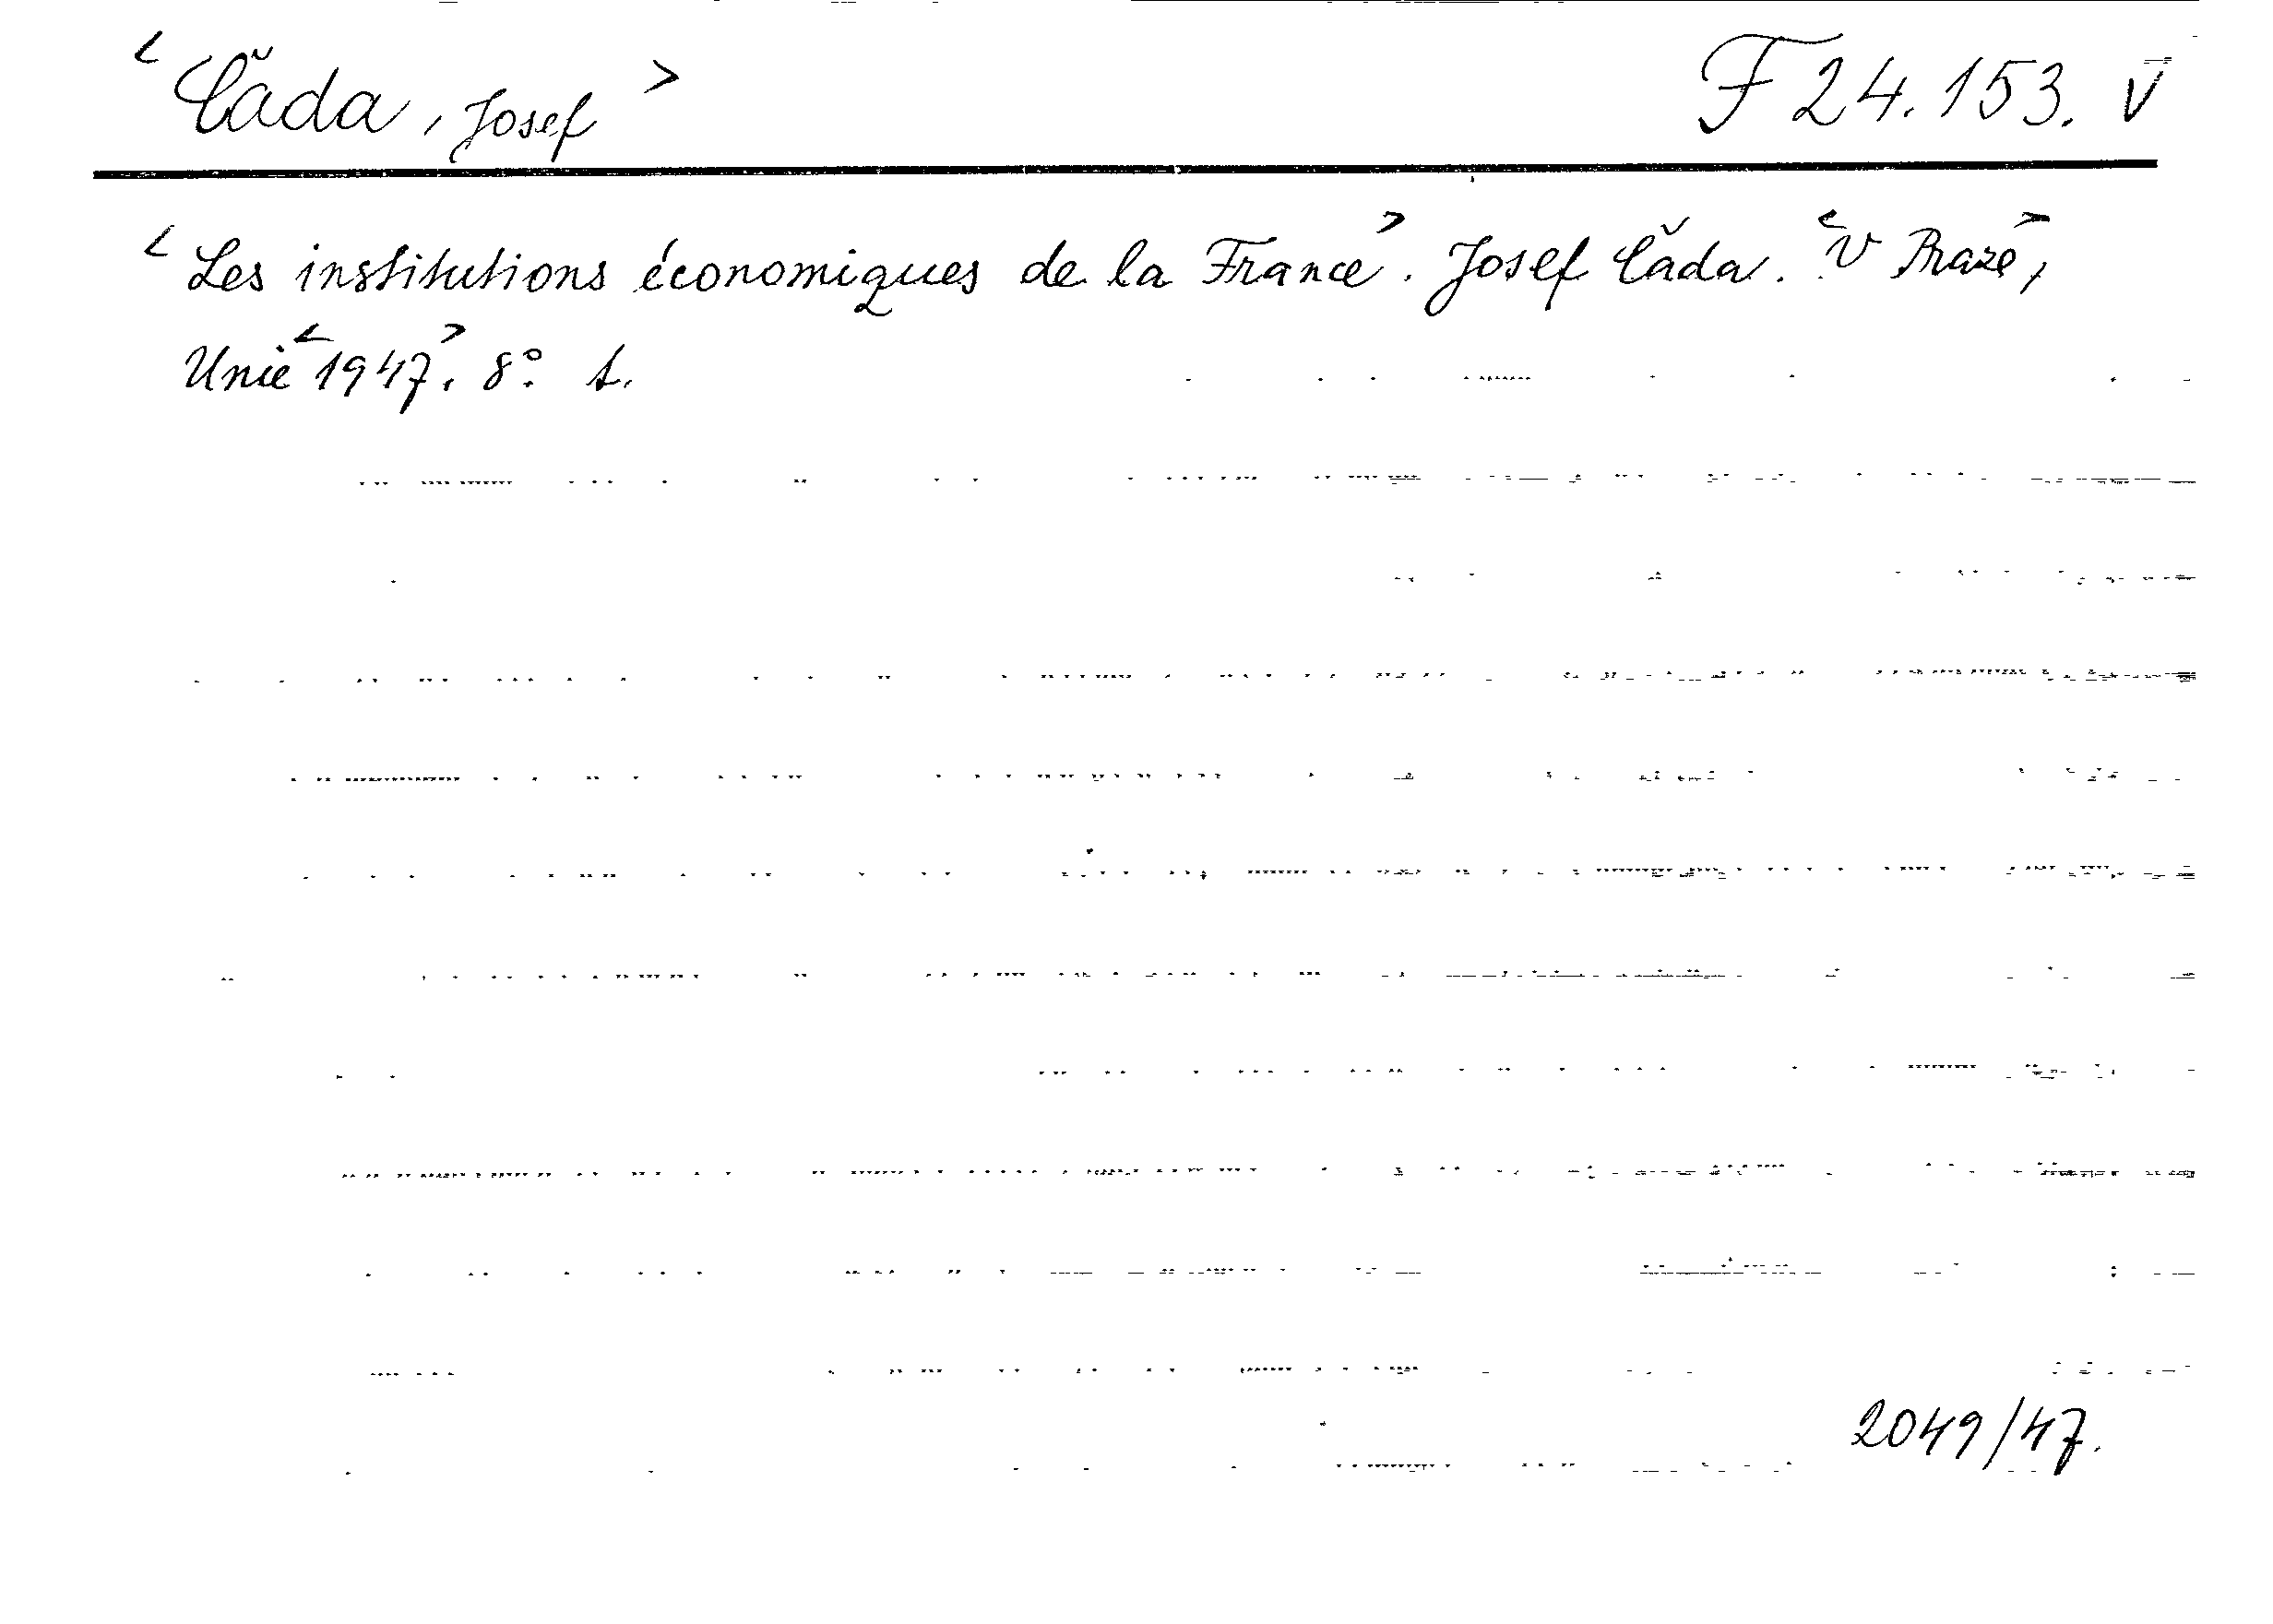 < Čáda, Josef > F 24.153. V
< Les institutions économiques de la France >. Josef Čáda. < V Praze >,
Unie < 1947 >. 8°. 1.
2049/47.